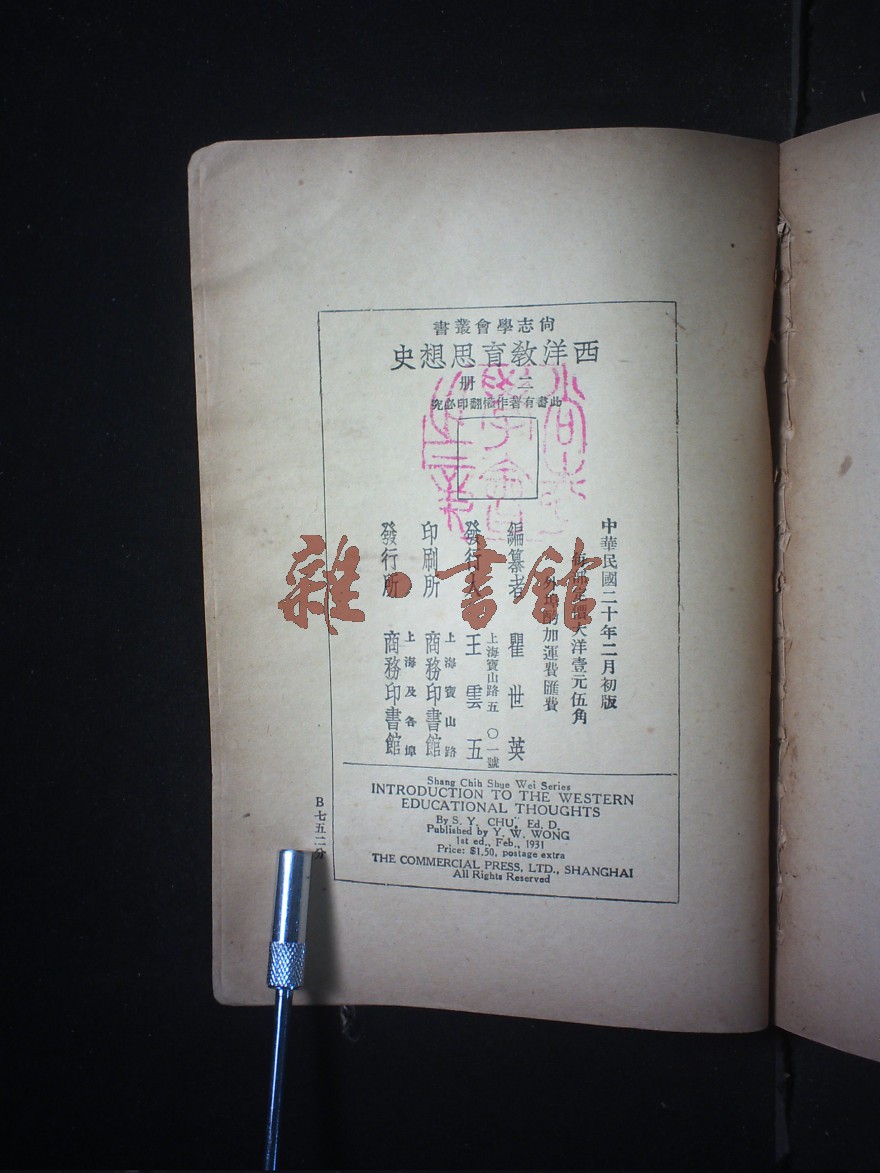 尙志學會叢書
西洋教育思想史
二册
此書有著作權翻印必究
中華民國二十年二月初版
每部定價大洋壹元伍角
外埠酌加運費匯費
編纂者 瞿世英
發行人 王雲五
上海寶山路五〇一號
印刷所 商務印書館
上海寶山路
發行所 商務印書館
上海及各埠
Shang Chih Shue Wei Series
INTRODUCTION TO THE WESTERN
EDUCATIONAL THOUGHTS
By S. Y. CHU, Ed. D.
Published by Y. W. WONG
1st ed., Feb., 1931
Price: $1.50, postage extra
THE COMMERCIAL PRESS, LTD., SHANGHAI
All Rights Reserved
B七五二分
雜·書館